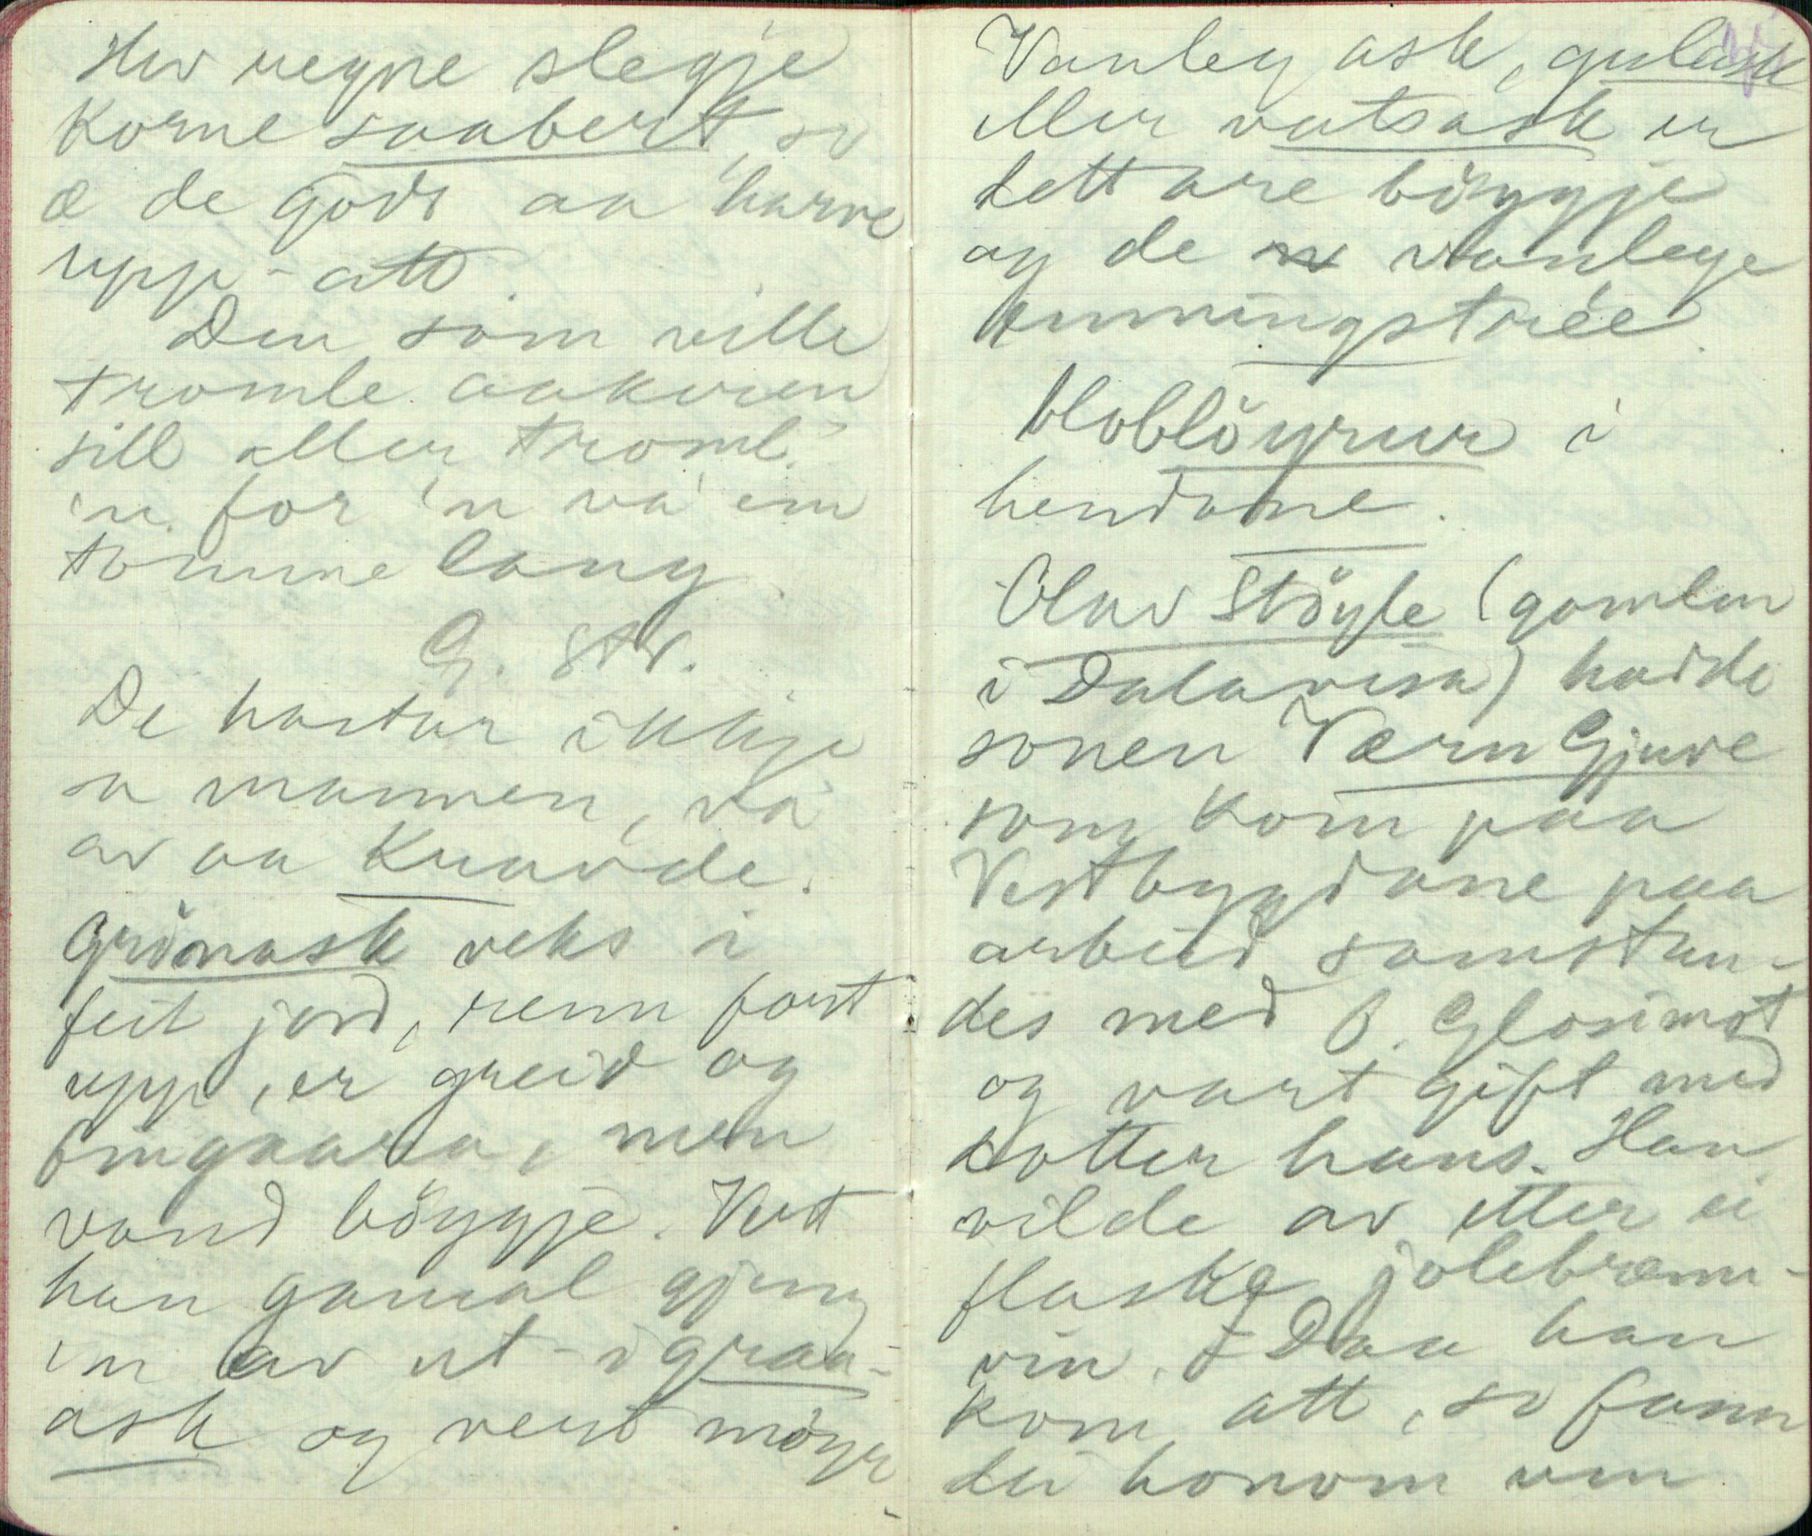 Hev regne slegje
korne saabert, so
æ de godt aa harve
upp-att.
Den som ville
tromle aakeren
sill eller troml'
'n. for 'n va' ein
tomme lang.
G. Str.
De hastar ikkje
sa mannen, va'
av aa knavde.
Grönask veks i
feit jord, renn fort
upp, er greid og
fingaara, men
vond böyggje. Vert
han gamal gjeng
'n av ut-i graa-
ask og vert möyr
Vanleg ask, gulask
eller vatsask er
lettare böyggje
og de vanlege
emningstrée.
bloblöyrur i
hendane.
Olav Stöyle (gamlen
i Dalavisa) hadde
sonen Værn Gjuve
som kom paa
Vestbygdane paa
arbeid samstun-
des med Ø. Glosimot
og vart gift med
dotter hans. Han
vilde av etter ei
flaske jolebrenn-
vin. Daa han
kom att, so fann
dei honom um